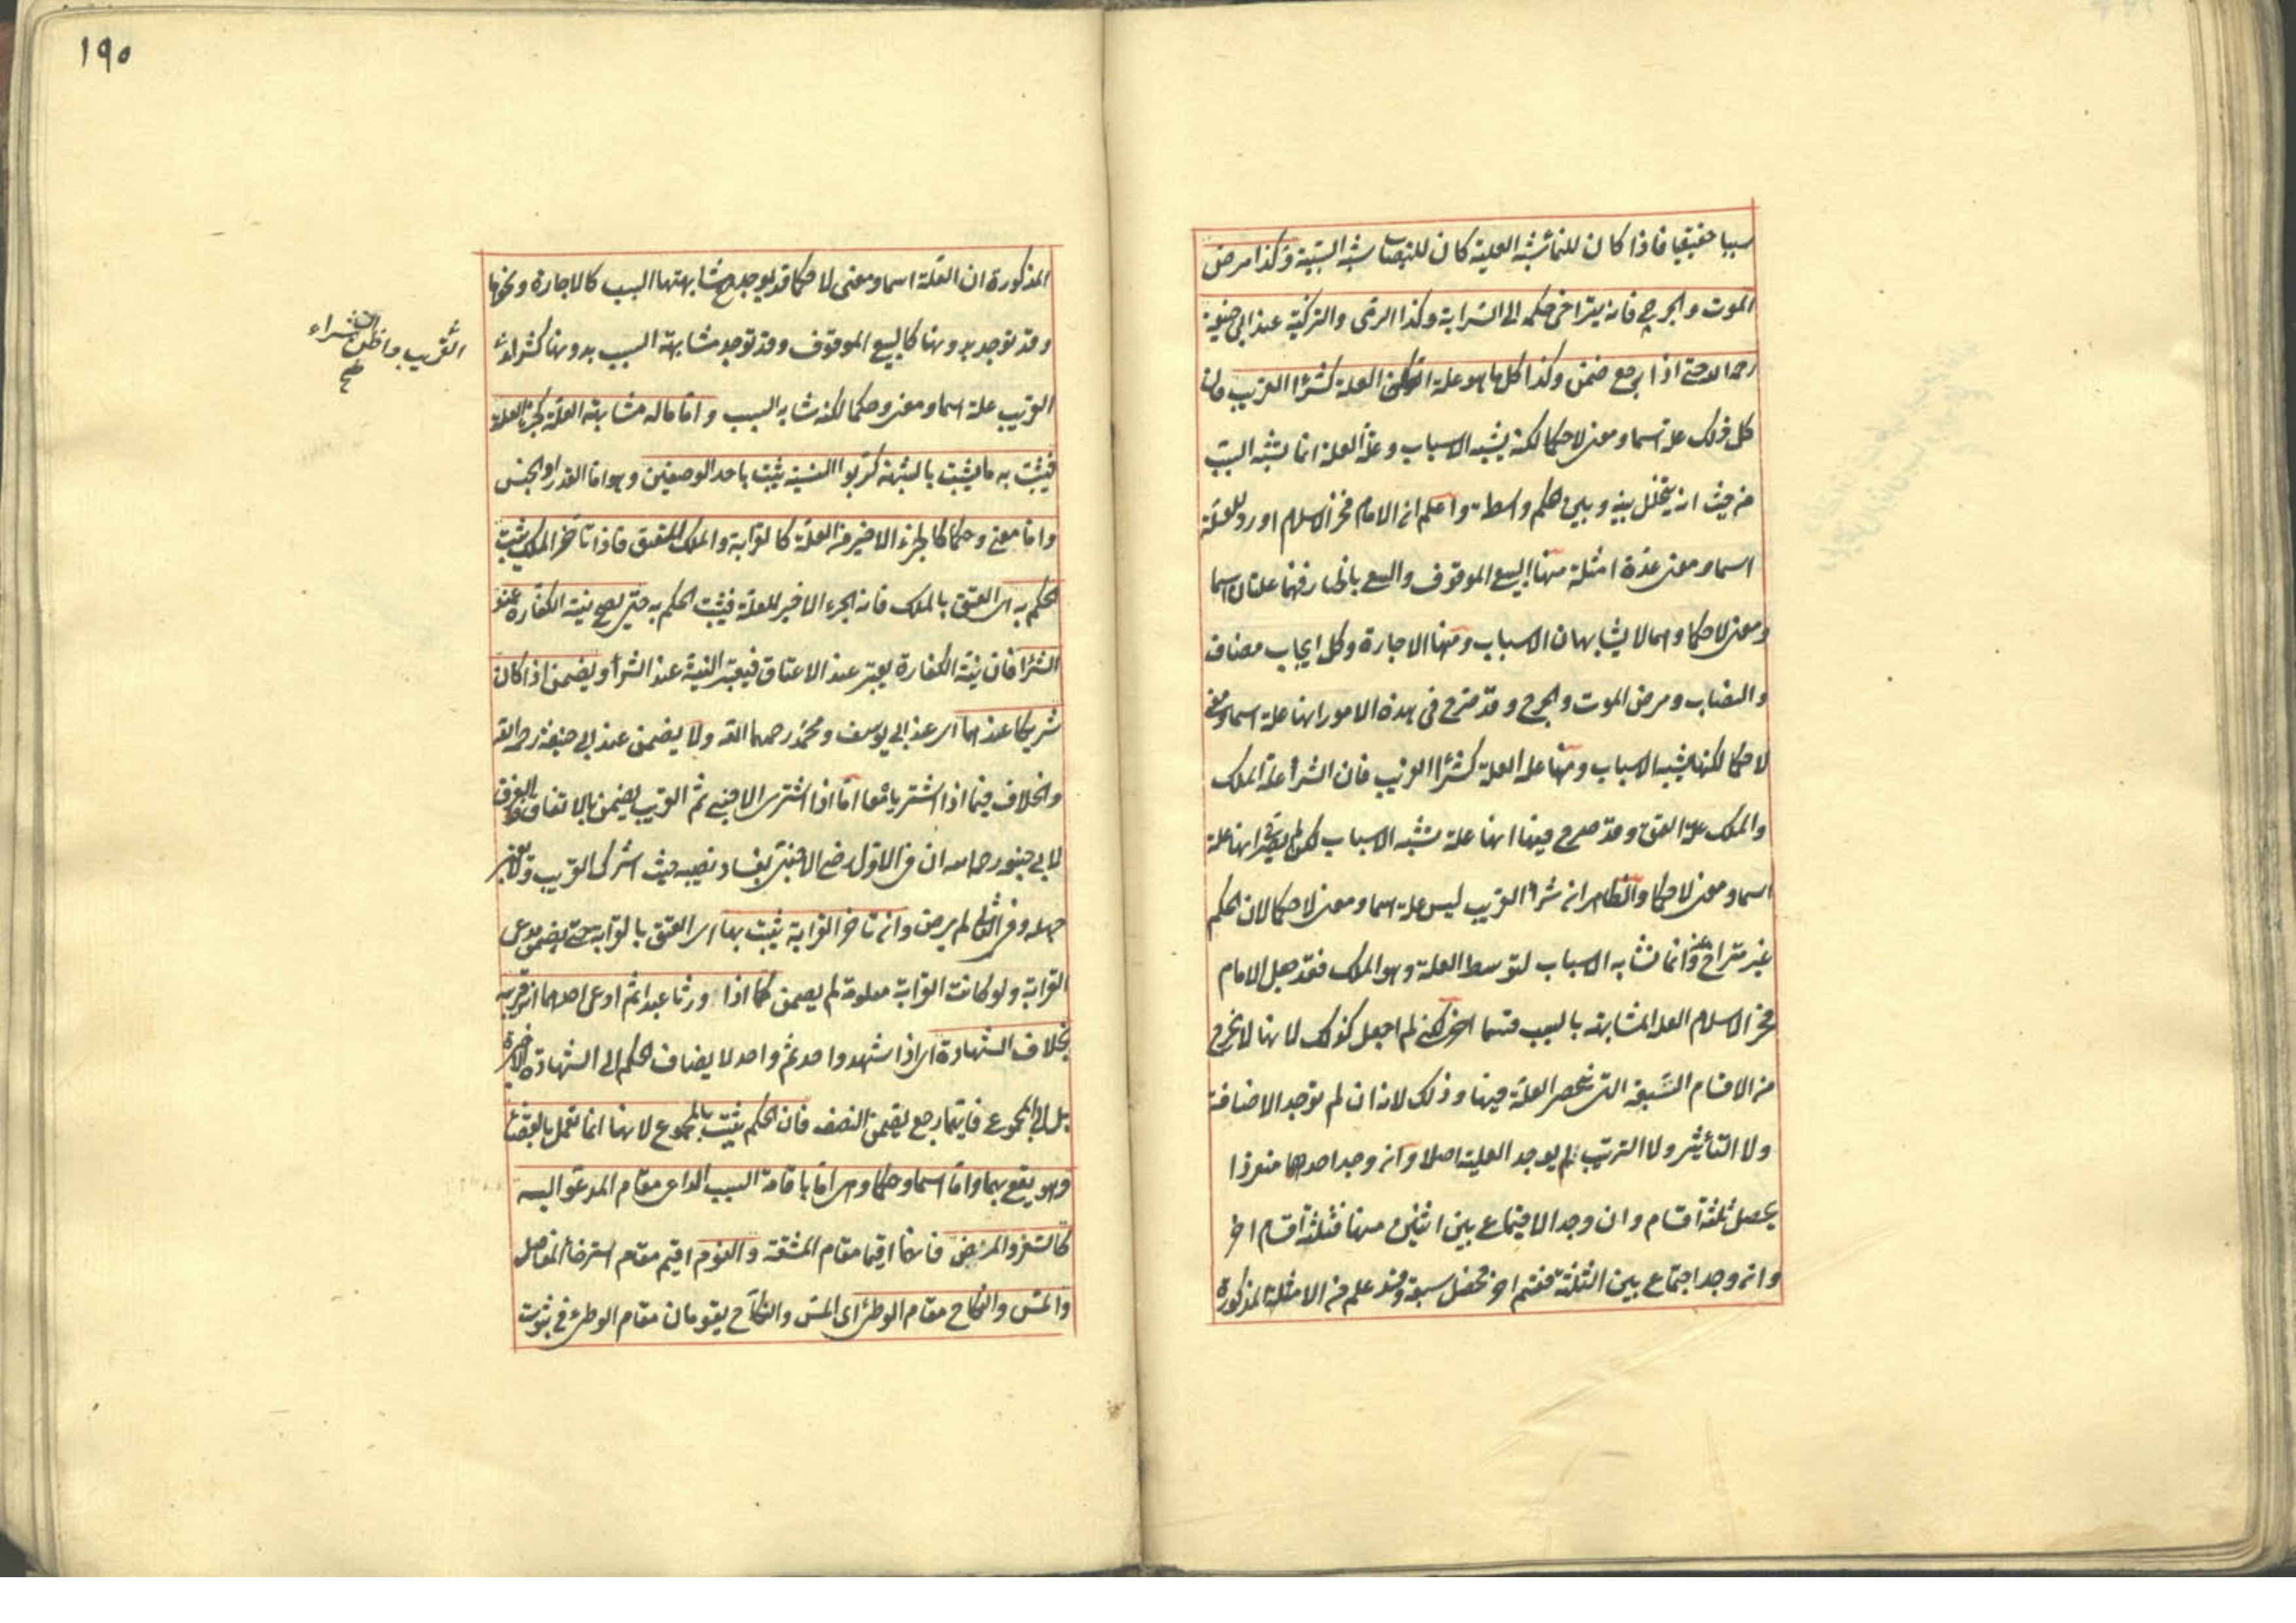 سببا حقيقيا فاذا كان للنماء شبه العلية كان للنصاب شبه السببية وكذا مرض
الموت والجرح فانه يتراخى حكمه الى السراية وكذا الرمى والتزكية عند ابى حنيفة
رحمه الله حتى اذا رجع ضمن وكذا كل ما هو علة العلة كشراء القريب فان
كل ذلك علة اسما ومعنى لا حكما لكنه يشبه الاسباب وعلة العلة انما يشبه السبب
من حيث انه يتخلل بينه وبين الحكم واسطة واعلم ان الامام فخر الاسلام اورد للعلة
اسما ومعنى عدة امثلة منها البيع الموقوف والبيع بالخيار فهما علتان اسما
ومعنى لا حكما وهما لا يشابهان الاسباب ومنها الاجارة وكل ايجاب مضاف
والنصاب ومرض الموت والجرح وقد صرح فى هذه الامور انها علة اسما ومعنى
لا حكما لكنها يشبه الاسباب ومنها علة العلة كشراء القريب فان الشراء علة الملك
والملك علة العتق وقد صرح فيها انها علة تشبه الاسباب لكن لم يصرح انها علة
اسما ومعنى لا حكما والظاهر ان شراء القريب ليس علة اسما ومعنى لا حكما لان الحكم
غير متراخ عنه وانما تشابه الاسباب لتوسط العلة وهو الملك فقد جعل الامام
فخر الاسلام العلة المشابهة بالسبب قسما اخر لكنى لم اجعل كذلك لانها لا تخرج
من الاقسام السبعة التى تنحصر العلة فيها وذلك لانه ان لم توجد الاضافة
ولا التأثير ولا الترتيب لم يوجد العلية اصلا وان وجد احدها منفردا
يحصل ثلثة اقسام وان وجد الاجتماع بين اثنين منها فثلثة اقسام اخر
وان وجد اجتماع بين الثلثة فقسم اخر فحصل سبعة وقد علم من الامثلة المذكورة
١٩٠
المذكورة ان العلة اسما ومعنى لا حكما قد يوجد مع مشابهتها السبب كالاجارة ونحوها
وقد توجد بدونها كالبيع الموقوف وقد توجد مشابهة السبب بدونها كشراء
القريب واظن ان شراء
صح
القريب علة اسما ومعنى وحكما لكنه شابه السبب واما ماله مشابهة العلة كجزء العلة
فيثبت به ما يثبت بالشبهة كربوا النسيئة يثبت باحد الوصفين وهو اما القدر او الجنس
واما معنى وحكما كالجزء الاخير من العلة كالقرابة والملك للعتق فاذا تاخر الملك يثبت
الحكم به اى العتق بالملك فانه الجزء الاخير للعلة فيثبت الحكم به حتى يصح نية الكفارة عند
الشراء فان نية الكفارة يعتبر عند الاعتاق فيعتبر النية عند الشراء ويضمن اذا كان
شريكا عندهما اى عند ابى يوسف ومحمد رحمهما الله ولا يضمن عند ابى حنيفة رحمه الله
والخلاف فيما اذا اشتريا معا اما اذا اشترى الاجنبى ثم القريب يضمن بالاتفاق والفرق
لابى حنيفة رحمه الله ان فى الاول رضى الاجنبى بفساد نصيبه حيث اشرك القريب ولا يعتبر
جهله وفى الثانى لم يرض وان تاخر القرابة يثبت بها اى العتق بالقرابة حتى يضمن مدعى
القرابة ولو كانت القرابة معلومة لم يضمن كما اذا ورثا عبدا ثم ادعى احدهما انه قريبه
بخلاف الشهادة اى اذا شهد واحد ثم واحد لا يضاف الحكم الى الشهادة الاخيرة
بل الى المجموع فايهما رجع يضمن النصف فان الحكم يثبت بالمجموع لانها انما تعمل بالقضاء
وهو يقع بهما واما اسما وحكما وهى اما باقامة السبب الداعى مقام المدعو اليه
كالسفر والمرض فانهما اقيما مقام المشقة والنوم اقيم مقام استرخاء المفاصل
والمس والنكاح مقام الوطئ اى المس والنكاح يقومان مقام الوطئ فى ثبوت